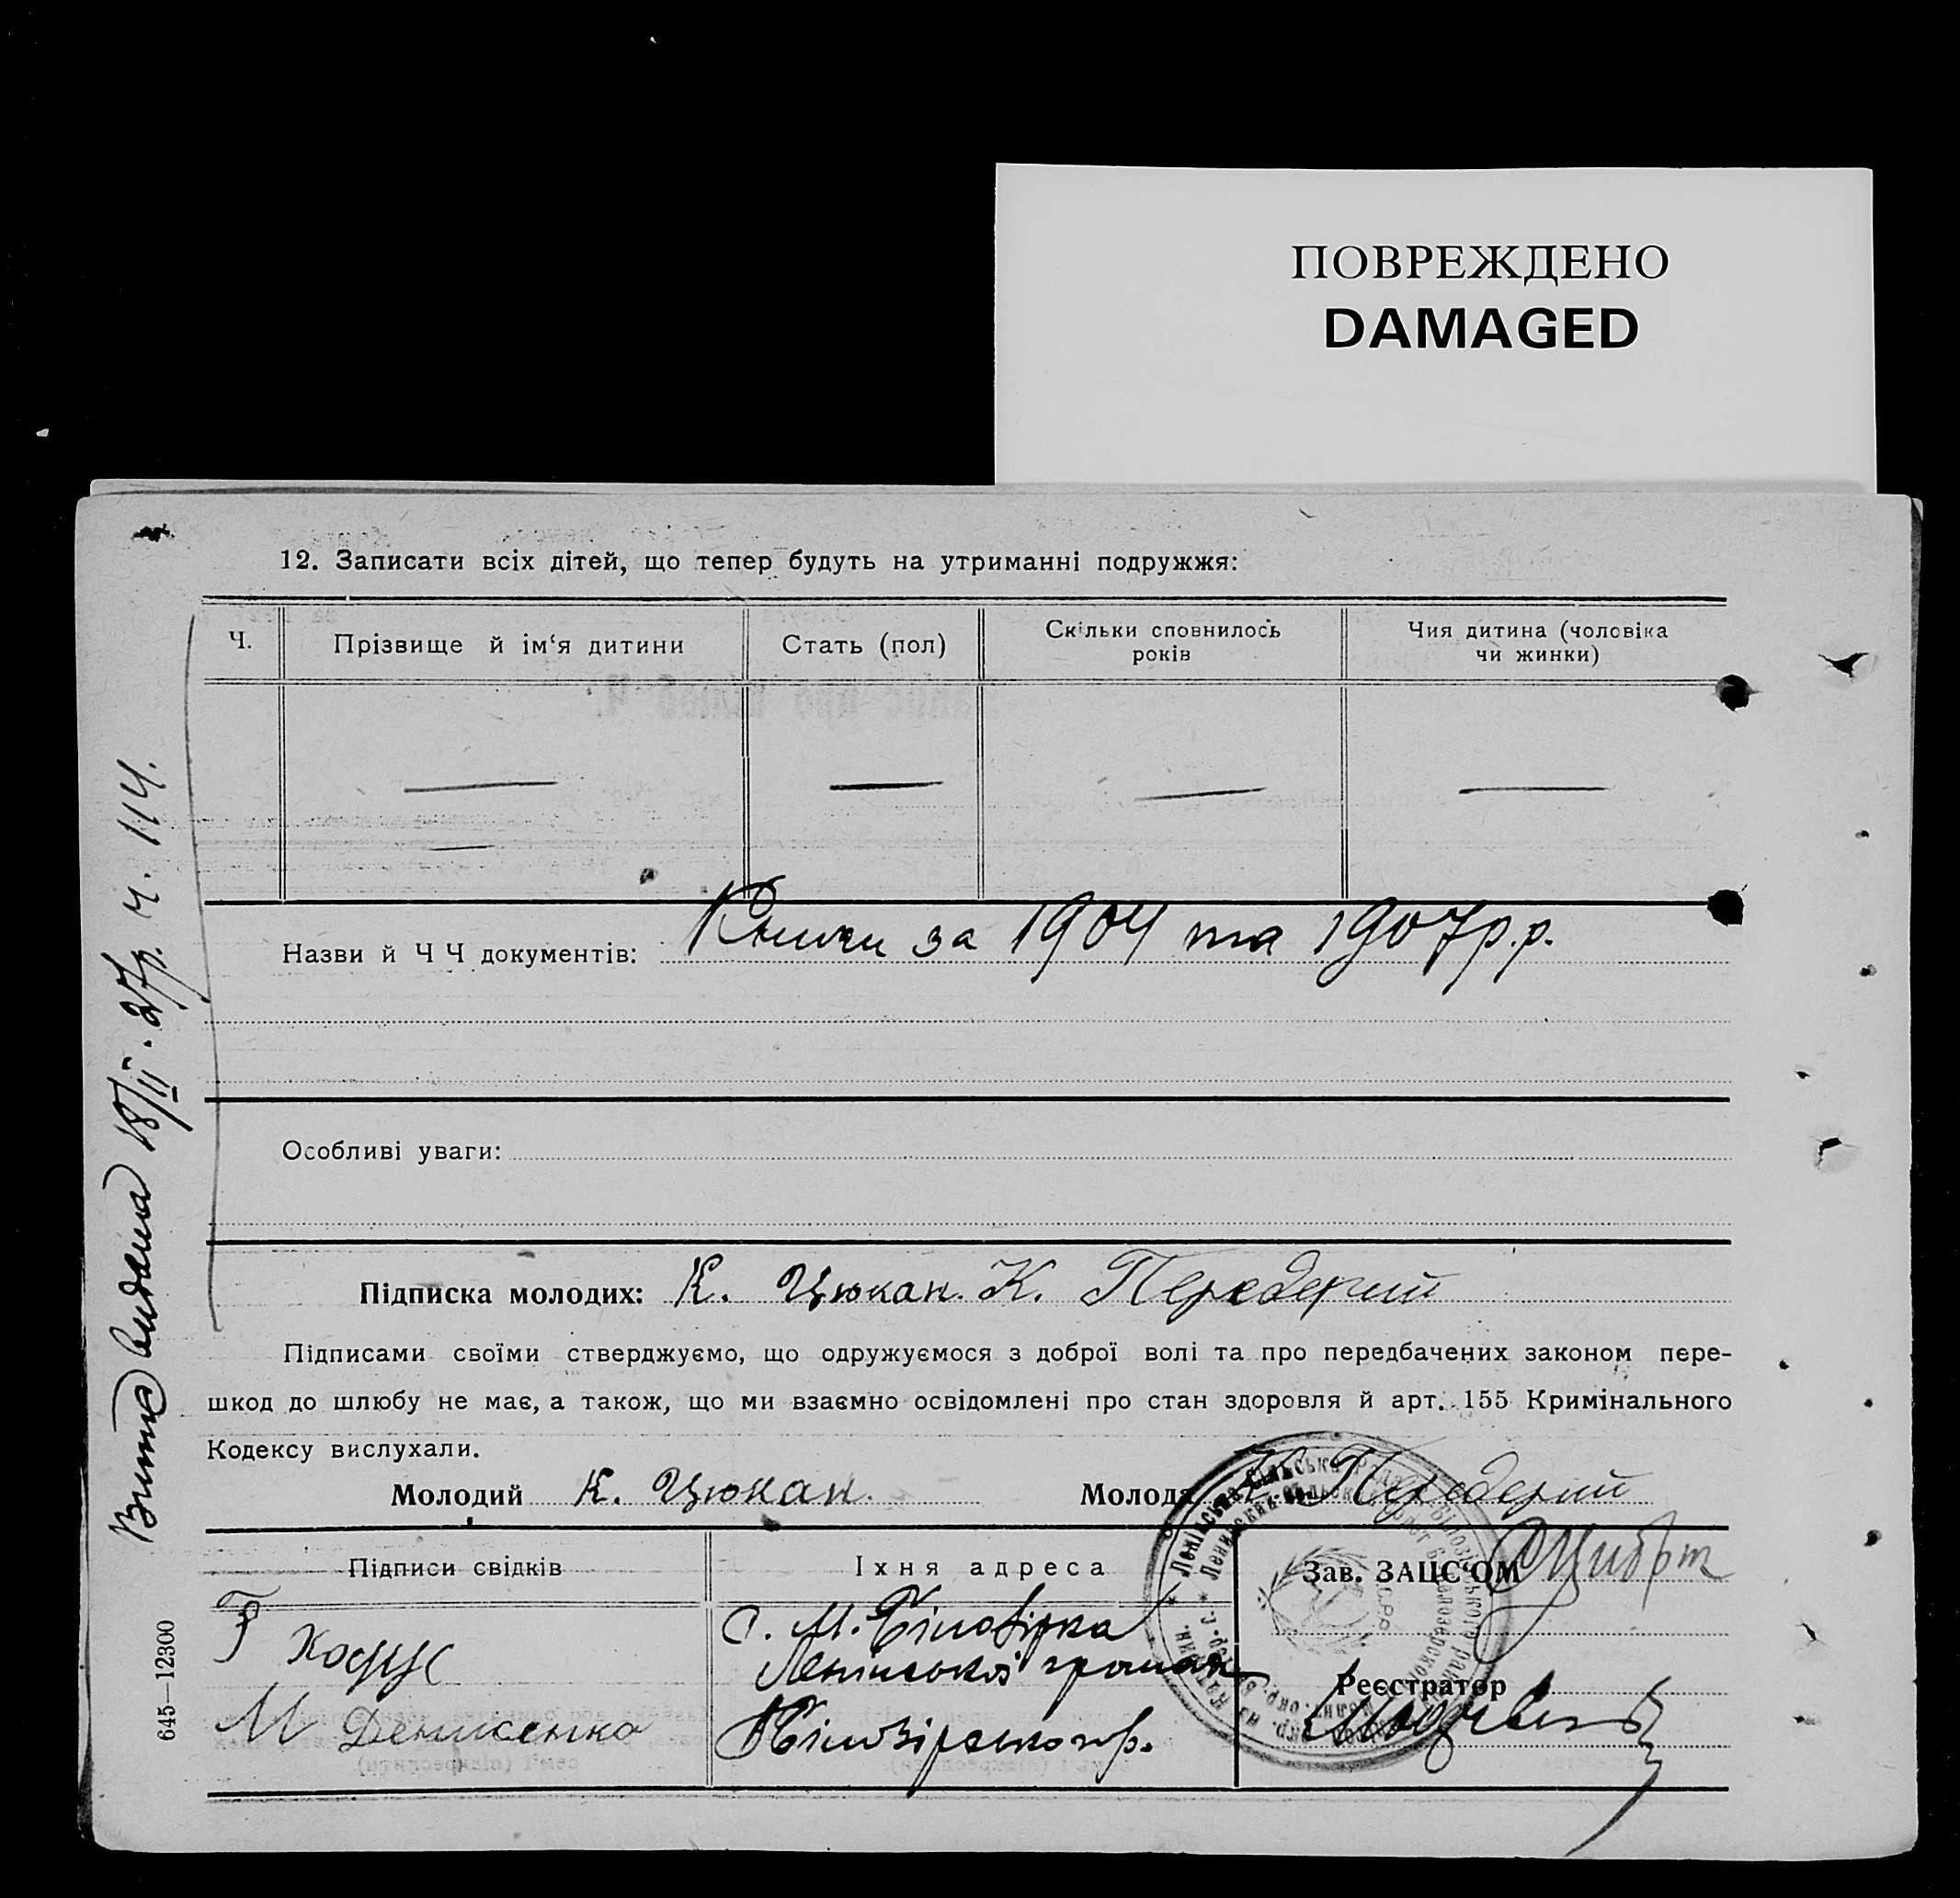 ПОВРЕЖДЕНО
DAMAGED
12. Записати всіх дітей, що тепер будуть на утриманні подружжя:
Ч.
Прізвище й ім‘я дитини
Стать (пол)
Скільки сповнилось
років
Чия дитина (чоловіка
чи жинки)
Назви й Ч Ч документів: Книги за 1904 та 1907 р.р.
Особливі уваги:
Підписка молодих: К. Цюкан. К. Передерий
Підписами своїми стверджуємо, що одружуємося з доброї волі та про передбачених законом пере-
шкод до шлюбу не має, а також, що ми взаємно освідомлені про стан здоровля й арт. 155 Кримінального
Кодексу вислухали.
Молодий К. Цюкан.
Молода К. Передерий
Підписи свідків
Їхня адреса
Зав. ЗАЦС‘ОМ
с. М. Білозірка
Ленінської громади
Білозірського р.
М Денисенко
Реєстратор
Витяг видана 18/II. 27р. ч. 114.
645—12300